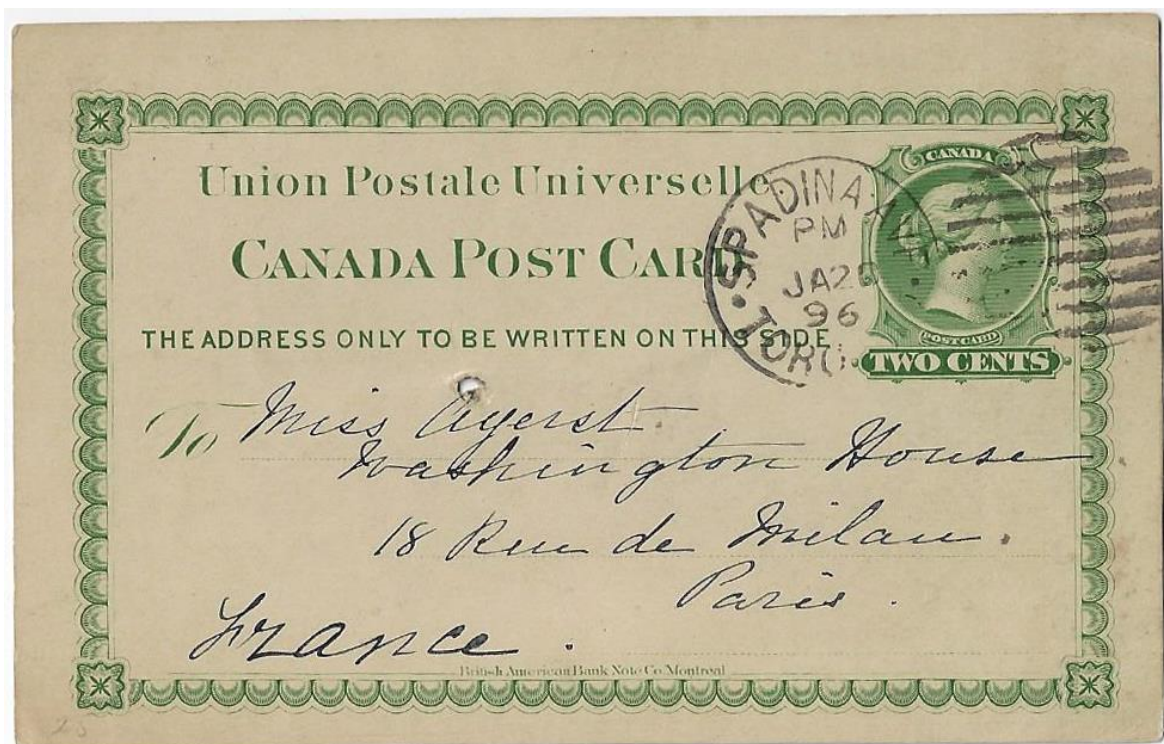 Union Postale Universelle.
CANADA POST CARD
THE ADDRESS ONLY TO BE WRITTEN ON THIS SIDE
CANADA
POST CARD
TWO CENTS
SPADINA AVE
PM
JA
96
TORO
To Miss Ayerst
Washington House
18 Rue de Milan.
Paris.
France.
British American Bank Note Co. Montreal